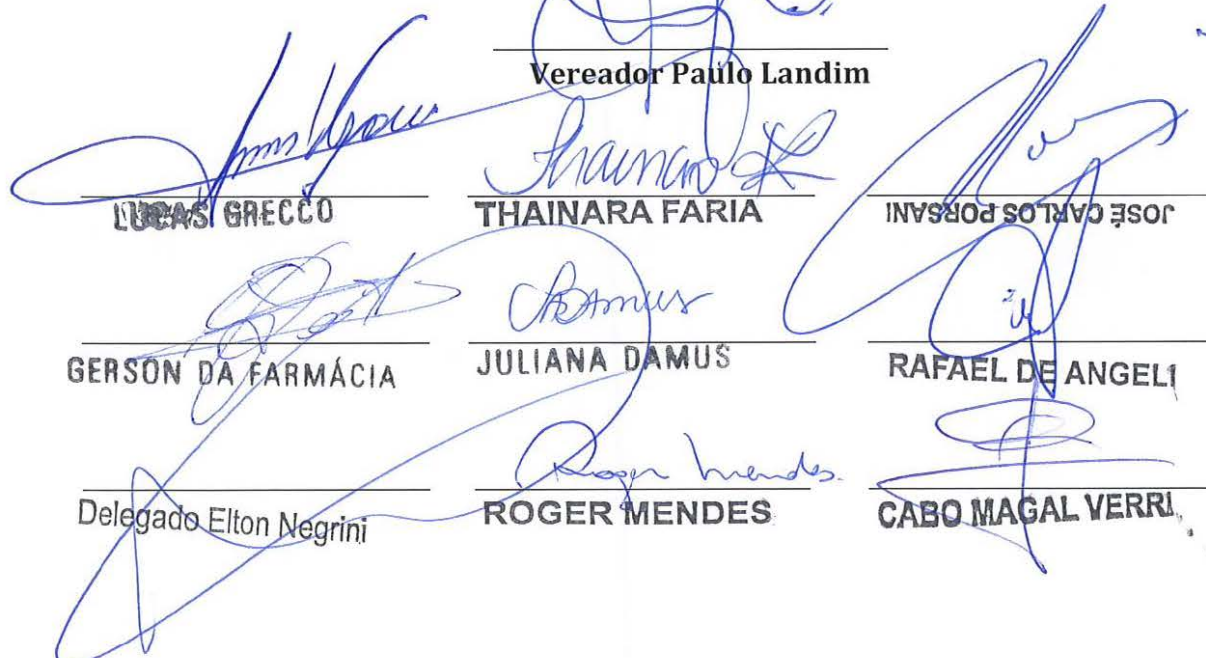 Vereador Paulo Landim
LUCAS GRECCO
THAINARA FARIA
JOSÉ CARLOS PORSANI
GERSON DA FARMÁCIA
JULIANA DAMUS
RAFAEL DE ANGELI
Roger Mendes.
Delegado Elton Negrini
ROGER MENDES
CABO MAGAL VERRI